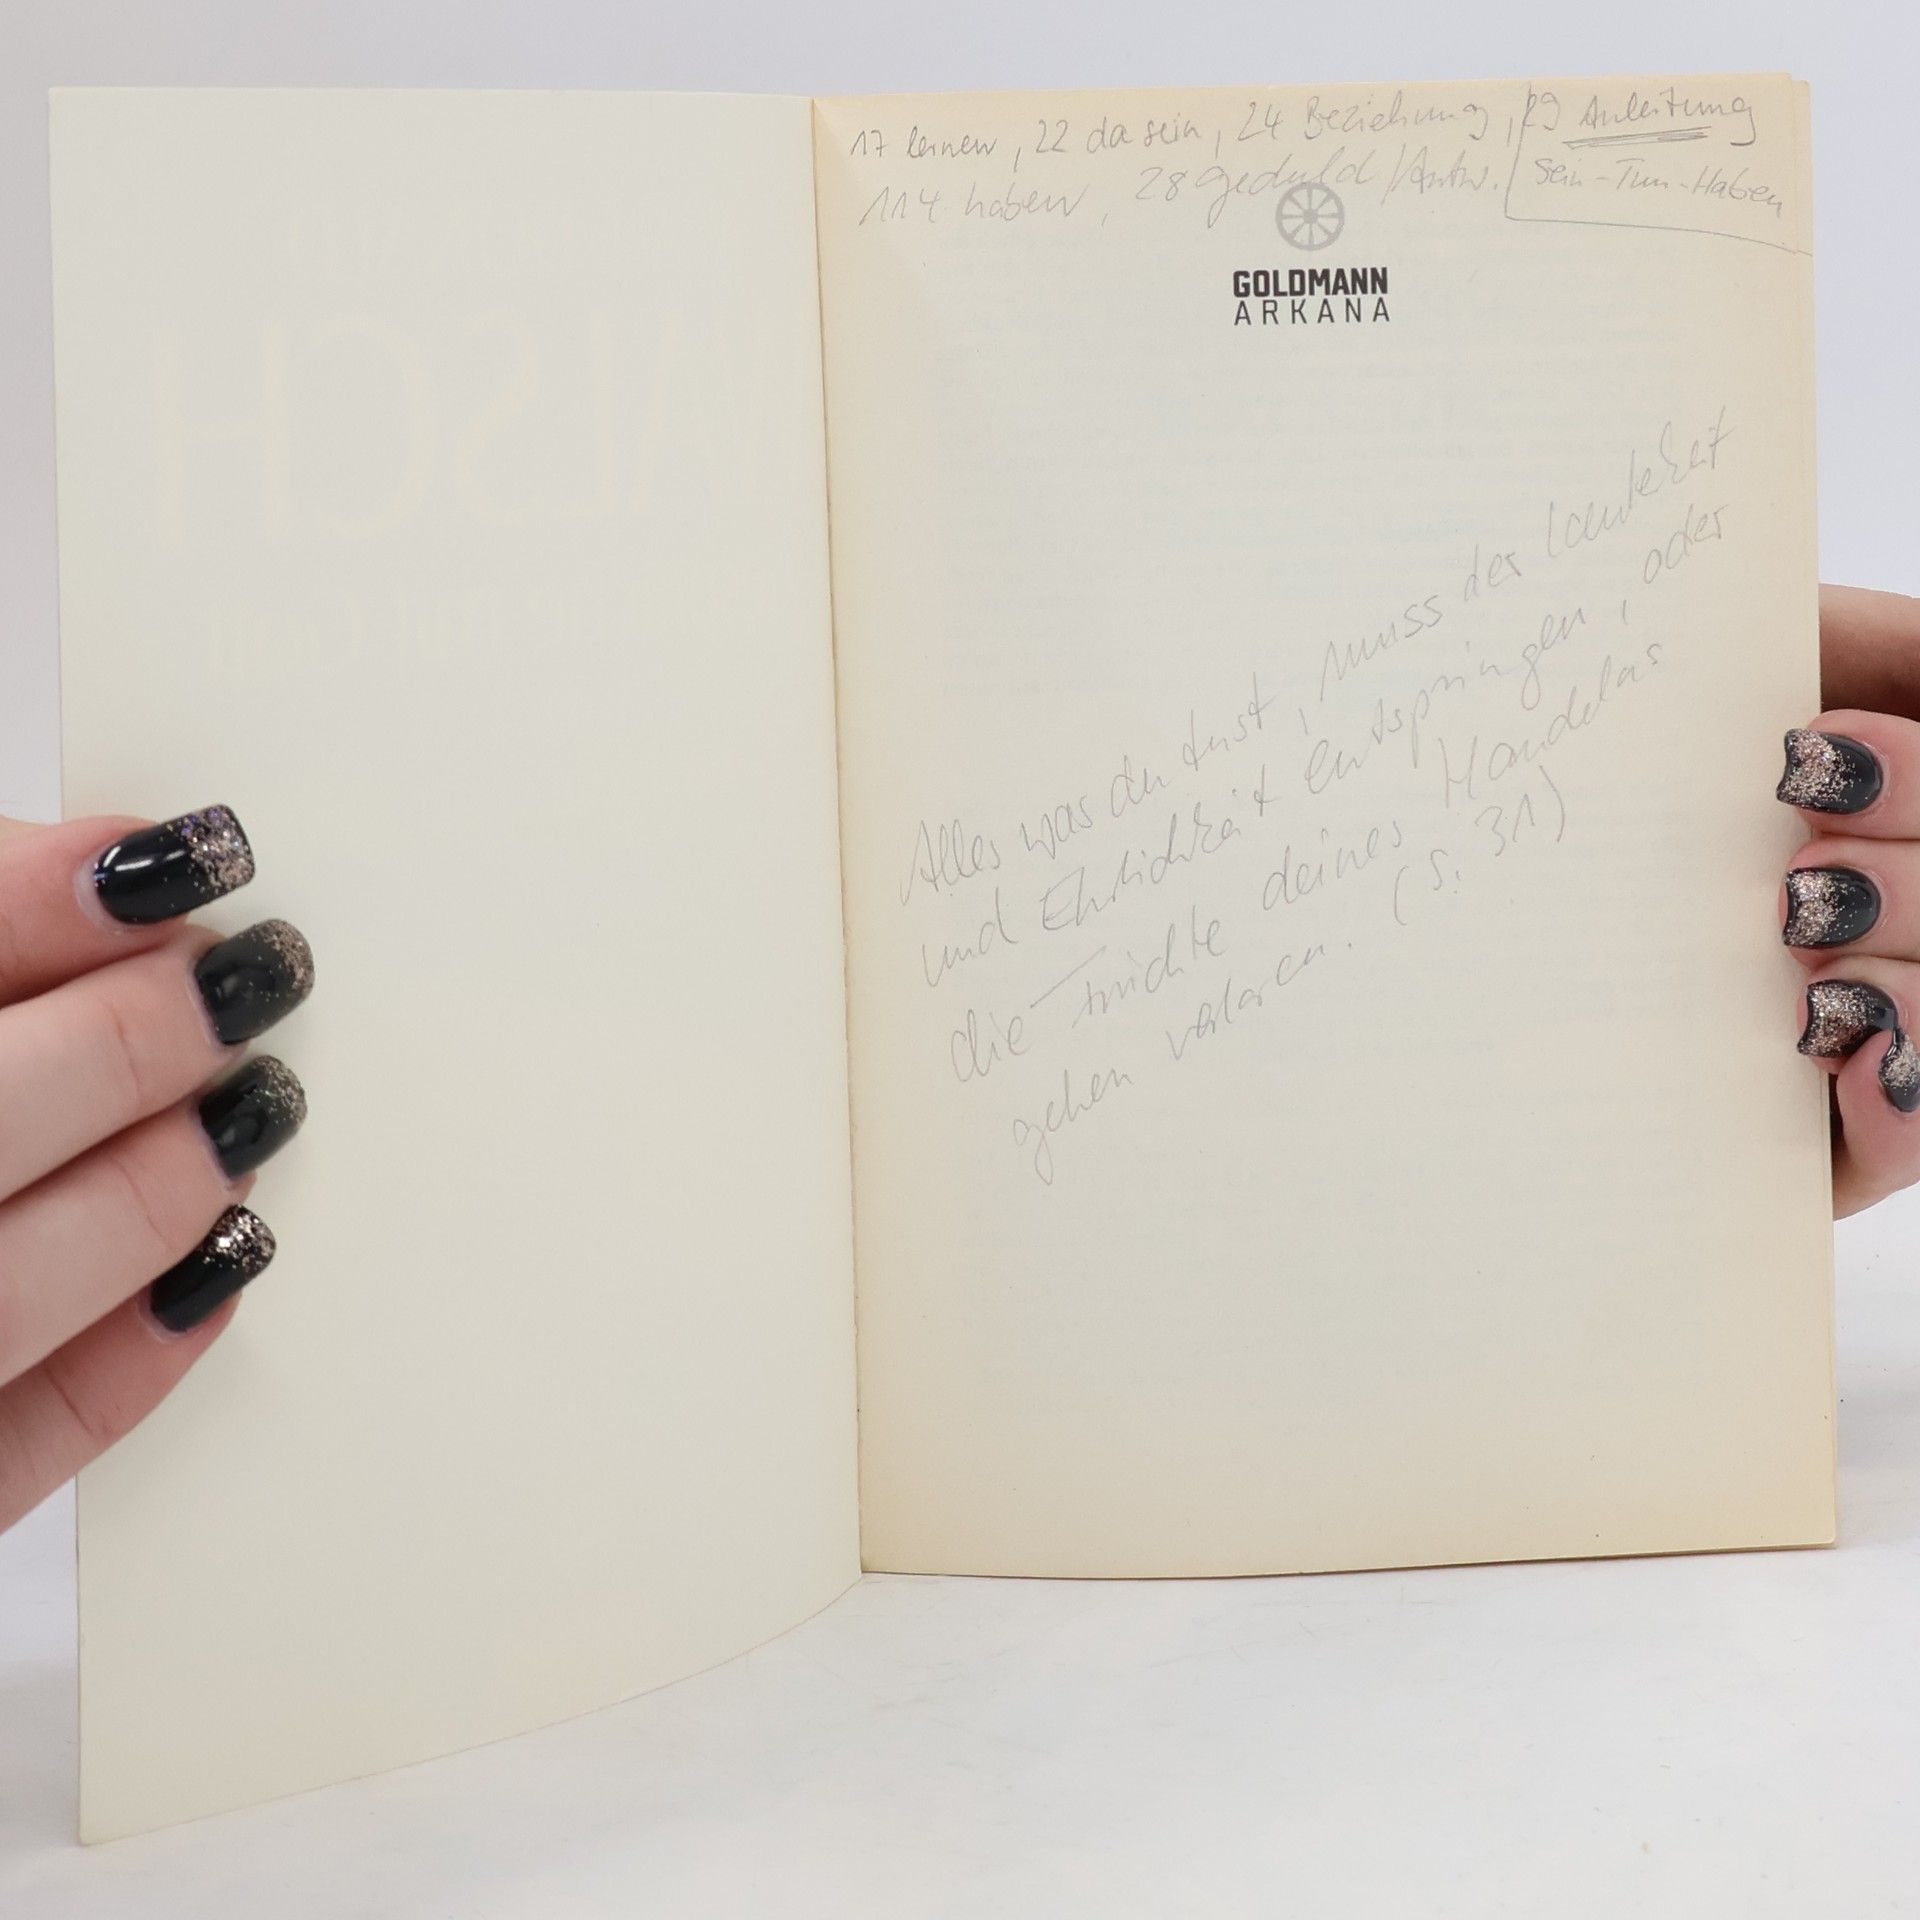 17 lernen, 22 da sein, 24 Beziehung, 29 Anleitung
114 haben, 28 Geduld/Antw. Sein-Tun-Haben
GOLDMANN
ARKANA
Alles was du tust, muss der Lauterkeit
und Ehrlichkeit entspringen, oder
die Früchte deines Handelns
gehen verloren. (S. 31)